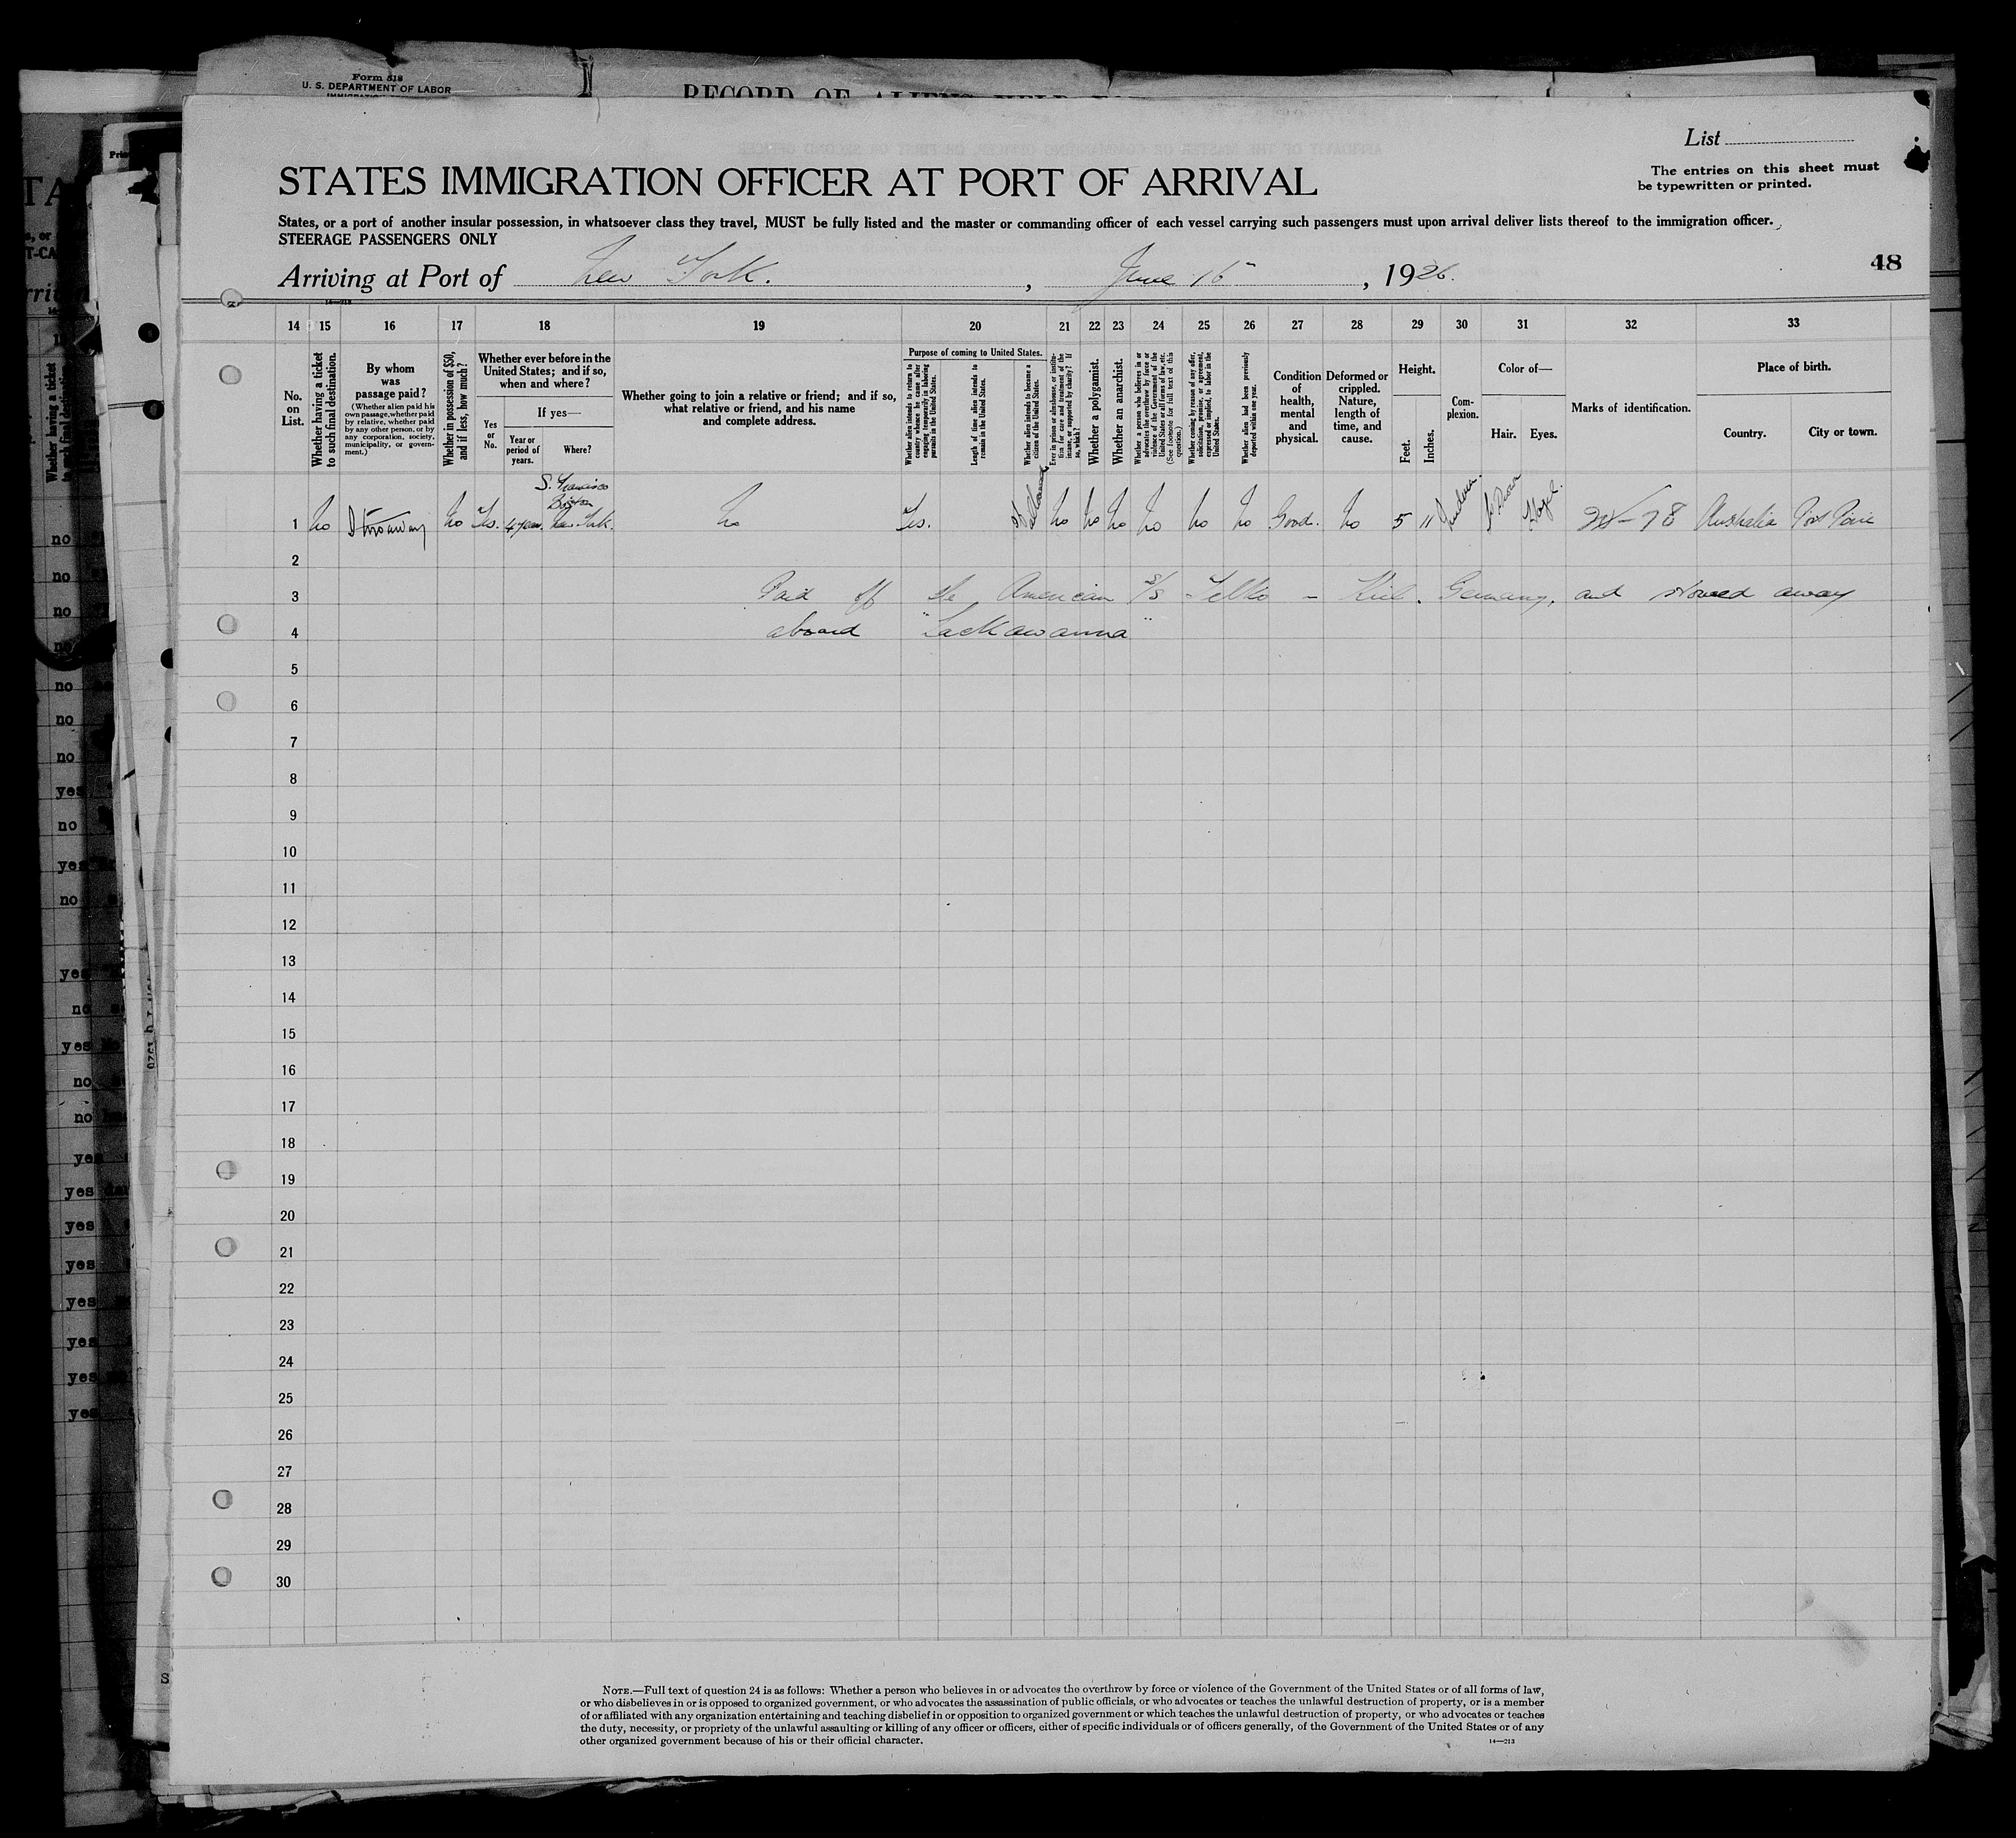 Form 518
U. S. DEPARTMENT OF LABOR
RECORD OF ALIENS HELD
List
The entries on this sheet must
be typewritten or printed.
STATES IMMIGRATION OFFICER AT PORT OF ARRIVAL
States, or a port of another insular possession, in whatsoever class they travel, MUST be fully listed and the master or commanding officer of each vessel carrying such passengers must upon arrival deliver lists thereof to the immigration officer.
STEERAGE PASSENGERS ONLY
Arriving at Port of New York. , June 15 , 1926.
48
14 15 16 17 18 19 20 21 22 23 24 25 26 27 28 29 30 31 32 33
No. on List.
Whether having a ticket to such final destination.
By whom was passage paid?
(Whether alien paid his own passage, whether paid by relative, whether paid by any other person, or by any corporation, society, municipality, or government.)
Whether in possession of $50, and if less, how much?
Whether ever before in the United States; and if so, when and where?
Yes or No.
If yes—
Year or period of years.
Where?
Whether going to join a relative or friend; and if so, what relative or friend, and his name and complete address.
Purpose of coming to United States.
Whether alien intends to return to country whence he came after engaging temporarily in laboring pursuits in the United States.
Length of time alien intends to remain in the United States.
Whether alien intends to become a citizen of the United States.
Ever in prison or almshouse, or institution for care and treatment of the insane, or supported by charity? If so, which?
Whether a polygamist.
Whether an anarchist.
Whether a person who believes in or advocates the overthrow by force or violence of the Government of the United States or all forms of law, etc. (See footnote for full text of this question.)
Whether coming by reason of any offer, solicitation, promise, or agreement, expressed or implied, to labor in the United States.
Whether alien had been previously deported within one year.
Condition of health, mental and physical.
Deformed or crippled. Nature, length of time, and cause.
Height.
Feet.
Inches.
Complexion.
Color of—
Hair.
Eyes.
Marks of identification.
Place of birth.
Country.
City or town.
S. Francisco
Boston
1 No Stowaway No Yes. 4 years New York. No Yes. No No No No No No Good. No 5 11 Hazel. Australia Port Pirie
2
3 Paid off the American S/S - Kiel. Germany, and stowed away
4 aboard "Lackawanna"
5
6
7
8
9
10
11
12
13
14
15
16
17
18
19
20
21
22
23
24
25
26
27
28
29
30
NOTE.—Full text of question 24 is as follows: Whether a person who believes in or advocates the overthrow by force or violence of the Government of the United States or of all forms of law,
or who disbelieves in or is opposed to organized government, or who advocates the assassination of public officials, or who advocates or teaches the unlawful destruction of property, or is a member
of or affiliated with any organization entertaining and teaching disbelief in or opposition to organized government or which teaches the unlawful destruction of property, or who advocates or teaches
the duty, necessity, or propriety of the unlawful assaulting or killing of any officer or officers, either of specific individuals or of officers generally, of the Government of the United States or of any
other organized government because of his or their official character.
14—213